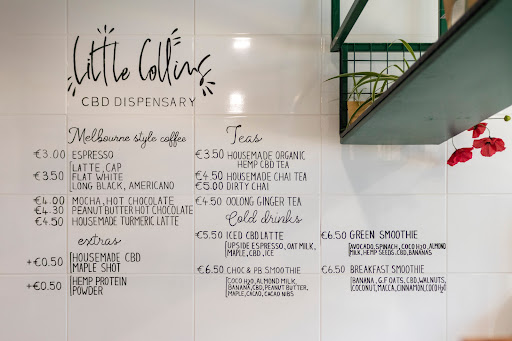 Little Collins
CBD DISPENSARY
Melbourne style coffee
€3.00 ESPRESSO
€3.50 LATTE, CAP
FLAT WHITE
LONG BLACK, AMERICANO
€4.00 MOCHA, HOT CHOCOLATE
€4.30 PEANUT BUTTER HOT CHOCOLATE
€4.50 HOUSEMADE TURMERIC LATTE
extras
+€0.50 HOUSEMADE CBD
MAPLE SHOT
+€0.50 HEMP PROTEIN
POWDER
Teas
€3.50 HOUSEMADE ORGANIC
HEMP CBD TEA
€4.50 HOUSEMADE CHAI TEA
€5.00 DIRTY CHAI
€4.50 OOLONG GINGER TEA
Cold drinks
€5.50 ICED CBD LATTE
UPSIDE ESPRESSO, OAT MILK,
MAPLE, CBD, ICE
€6.50 CHOC & PB SMOOTHIE
COCO H2O, ALMOND MILK,
BANANA, CBD, PEANUT BUTTER,
MAPLE, CACAO, CACAO NIBS
€6.50 GREEN SMOOTHIE
AVOCADO, SPINACH, COCO H2O, ALMOND
MILK, HEMP SEEDS, CBD, BANANAS
€6.50 BREAKFAST SMOOTHIE
BANANA, G.F OATS, CBD, WALNUTS,
COCONUT, MACCA, CINNAMON, COCO H2O